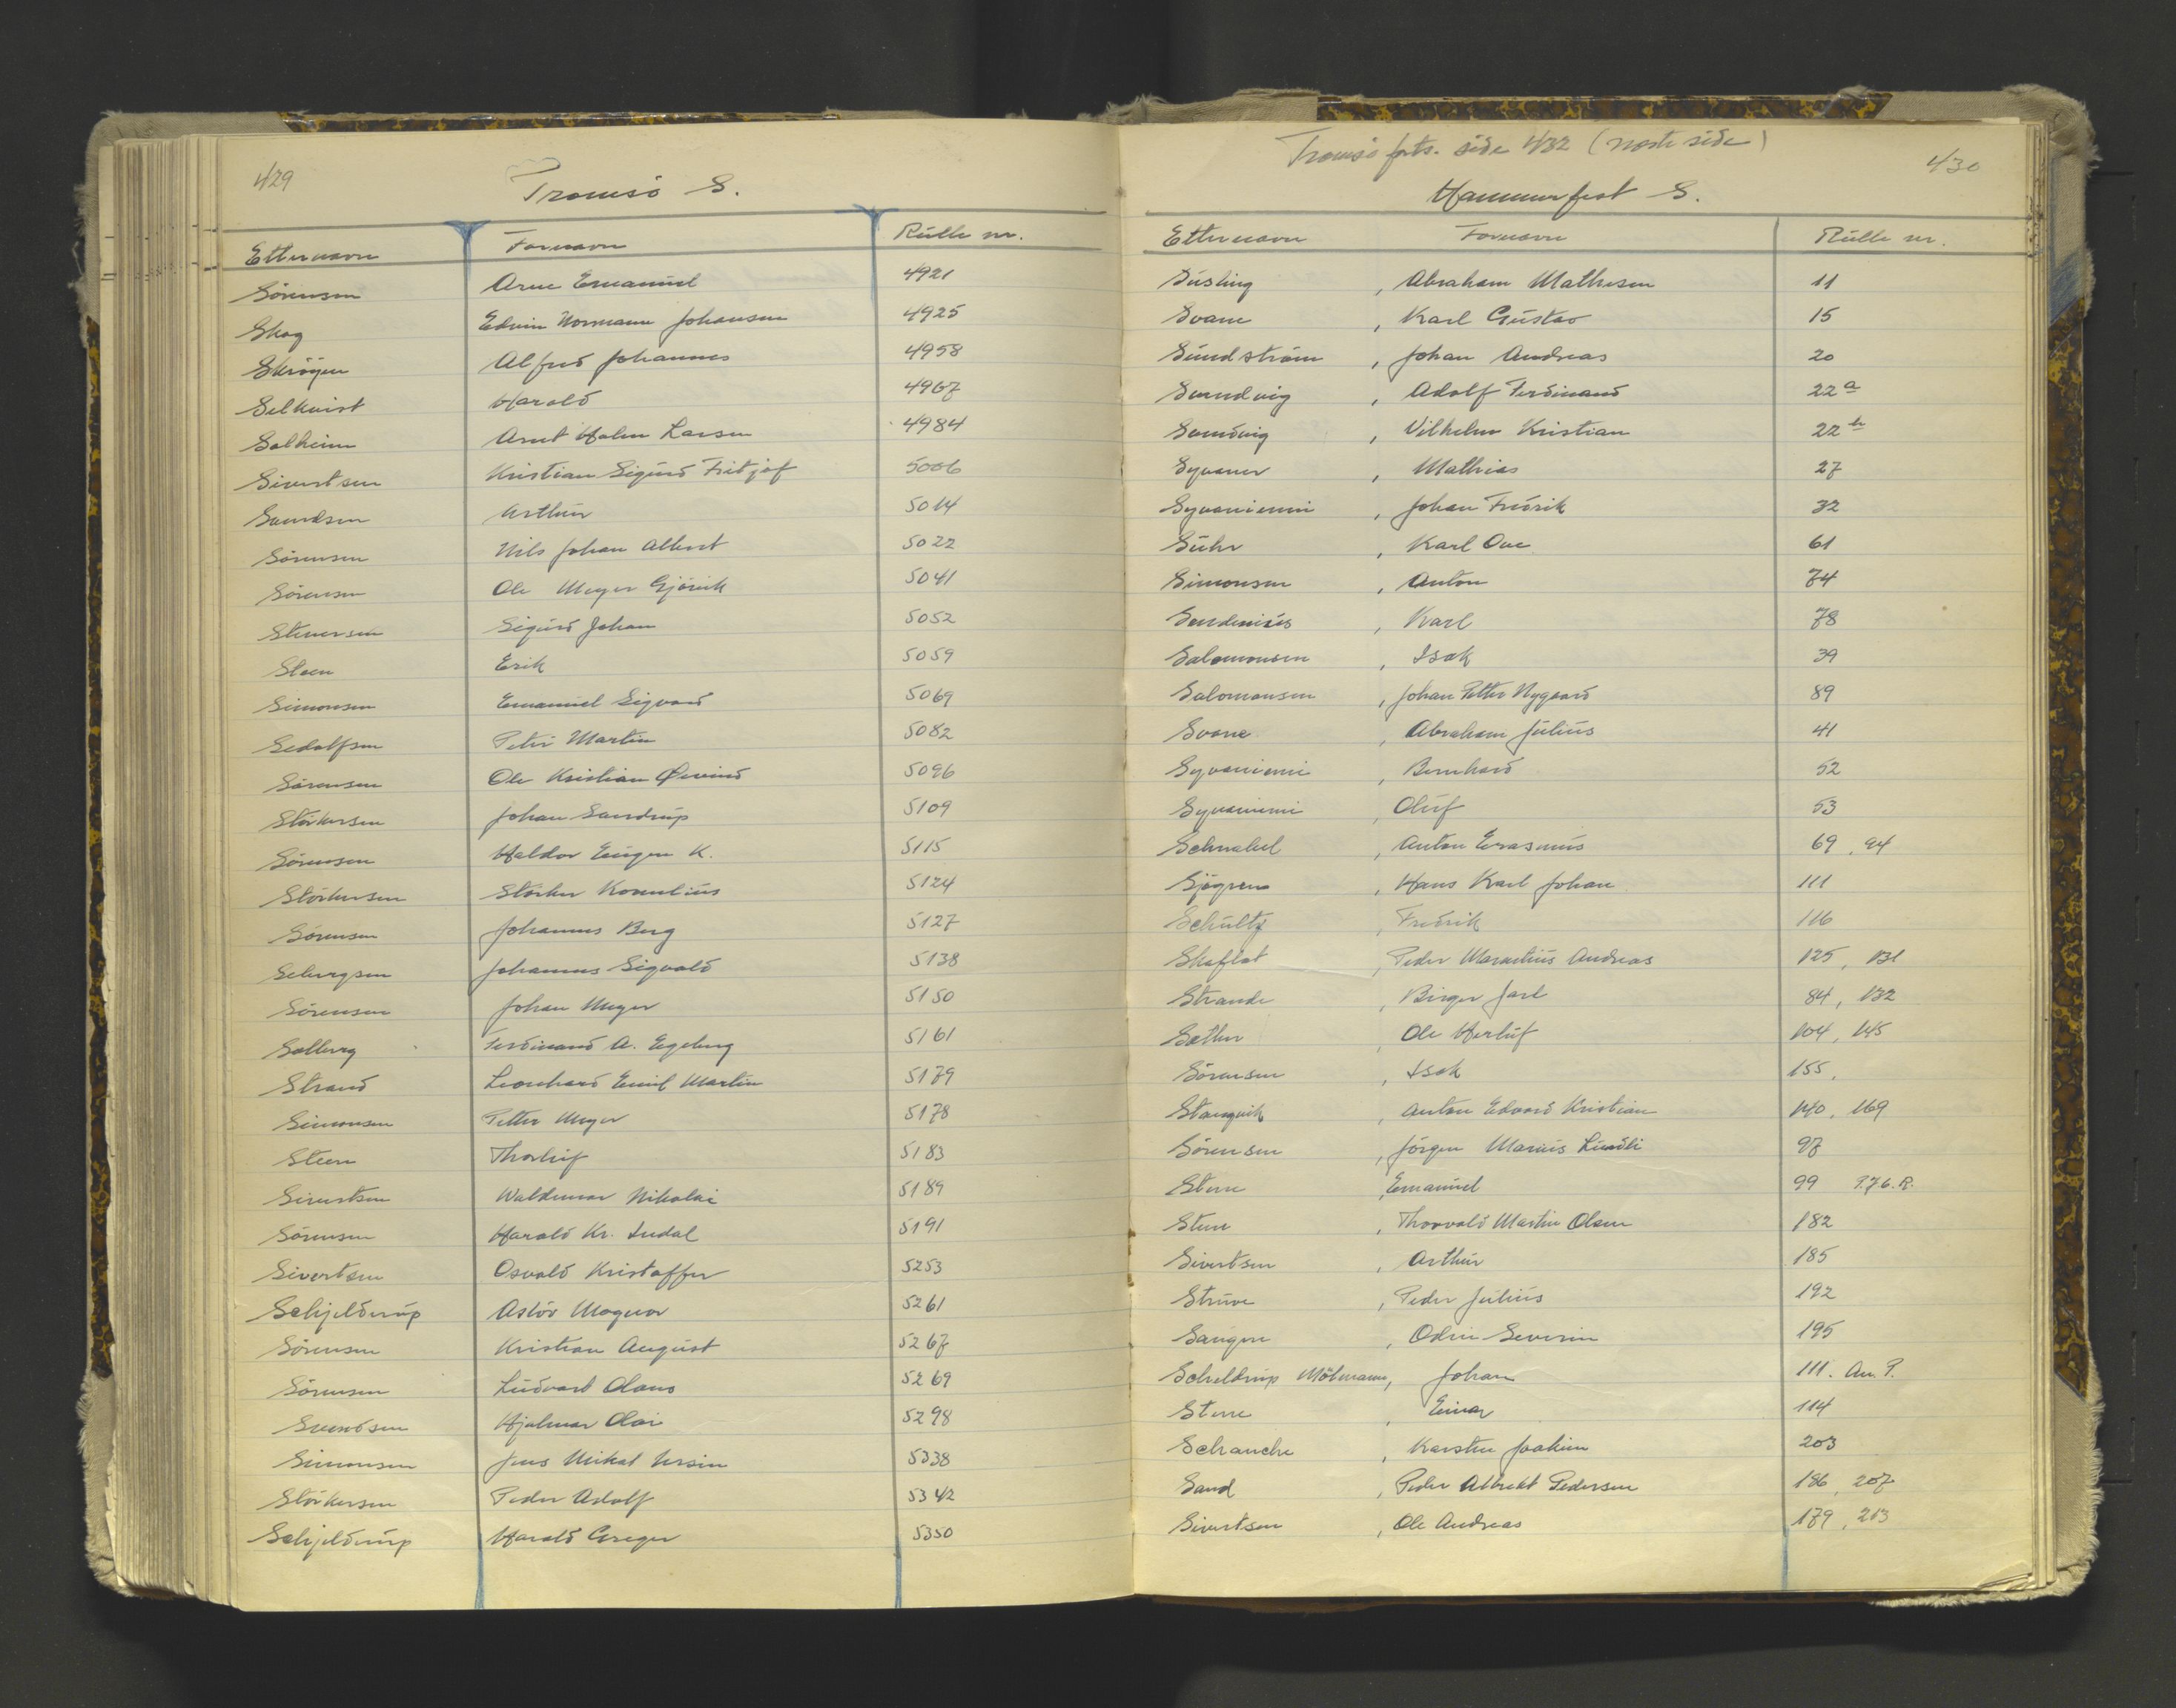 429
Tromsö S.
Etternavn Fornavn Rulle nr.
Sörensen Arne Emanuel 4921
Skog Edvin Normann Johansen 4925
Skrögen Alfred Johannes 4958
Selkvist Harald 4967
Solheim Arnt Holm Larsen 4984
Sivertsen Kristian Sigurd Fritjof 5006
Svendsen Arthur 5014
Sörensen Nils Johan Albert 5022
Sörensen Ole Meyer Gjövik 5041
Stenersen Sigurd Johan 5052
Steen Erik 5059
Simonsen Emanuel Sigvard 5069
Sedolfsen Peter Martin 5082
Sörensen Ole Kristian Øivind 5096
Störkersen Johan Sandrup 5109
Sörensen Haldor Eugen K. 5115
Störkersen Störker Kornelius 5124
Sörensen Johannes Berg 5127
Selbergsen Johannes Sigvald 5138
Sörensen Johan Meyer 5150
Solberg Ferdinand A. Egeberg 5161
Strand Leonhard Emil Martin 5179
Simonsen Petter Meyer 5178
Steen Thorleif 5183
Sivertsen Waldemar Nikolai 5189
Sörensen Harald Kr. Indal 5191
Sivertsen Osvald Kristoffer 5253
Schjelderup Aslöv Magnor 5261
Sörensen Kristian August 5267
Sörensen Ludvart Olaus 5269
Svendsen Hjalmar Olai 5298
Simonsen Jens Mikal Ursin 5338
Störkersen Peder Adolf 5342
Schjelderup Harald Greger 5350
Tromsö forts. side 432 (neste side)
430
Hammerfest S.
Etternavn Fornavn Rulle nr.
Susling, Abraham Mathesen 11
Svane, Karl Gustav 15
Sundström, Johan Andreas 20
Sundvig, Adolf Ferdinand 22 a
Sundvig, Vilhelm Kristian 22 b
Syvaner, Mathias 27
Syvaniemi, Johan Fredrik 32
Suhr, Karl Ove 61
Simonsen, Anton 74
Sendenius, Karl 78
Salomonsen, Isak 39
Salomonsen, Johan Petter Nygaard 89
Svane, Abraham Julius 41
Syvaniemi, Bernhard 52
Syvaniemi, Oluf 53
Schnabel, Anton Erasmus 69, 94
Sjögren, Hans Karl Johan 111
Schultz, Fredrik 116
Skaflot, Peder Marselius Andreas 125, 131
Strande, Birger Jarl 84, 132
Sæther, Ole Herluf 104, 145
Sörensen, Isak 155,
Stangvik, Anton Edvard Kristian 140, 169
Sörensen, Jörgen Marius Lundli 97
Stene, Emanuel 99 P.76.R.
Stene, Thorvald Martin Olsen 182
Sivertsen, Arthur 185
Struve, Peder Julius 192
Saugen, Odin Severin 195
Scheldrup Mölmann, Johan 111. An. P.
Stene, Einar 114
Schanche, Karsten Joakim 203
Sand, Peder Albrekt Pedersen 186, 207
Sivertsen, Ole Andreas 179, 213